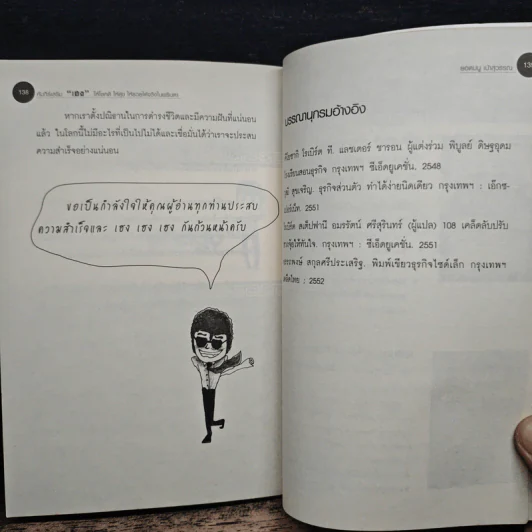 138
"เฮง"
หากเราตั้งปณิธานในการดำรงชีวิตและมีความฝันที่แน่นอน
แล้ว ในโลกนี้ไม่มีอะไรที่เป็นไปไม่ได้และเชื่อมั่นได้ว่าเราจะประสบ
ความสำเร็จอย่างแน่นอน
ขอเป็นกำลังใจให้คุณผู้อ่านทุกท่านประสบ
ความสำเร็จและ เฮง เฮง เฮง กันถ้วนหน้าครับ
บรรณานุกรมอ้างอิง
โรเบิร์ต ที. แลชเตอร์ ชารอน ผู้แต่งร่วม พิบูลย์ ดิษฐอุดม
โรงเรียนสอนธุรกิจ กรุงเทพฯ ซีเอ็ดยูเคชั่น. 2548
สุขเจริญ. ธุรกิจส่วนตัว ทำได้ง่ายนิดเดียว กรุงเทพฯ : เอ็กซ-
2551
สเตปฟานี อมรรัตน์ ศรีสุรินทร์ (ผู้แปล) 108 เคล็ดลับปรับ
ให้ทันใจ. กรุงเทพฯ : ซีเอ็ดยูเคชั่น. 2551
สกุลศรีประเสริฐ. พิมพ์เขียวธุรกิจไซด์เล็ก กรุงเทพฯ
: 2552